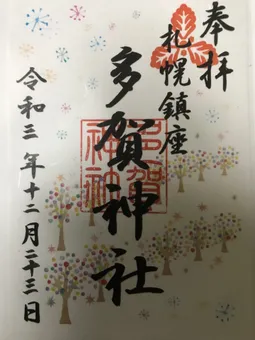 奉拝
札幌鎮座
多賀神社
令和三年十二月二十三日